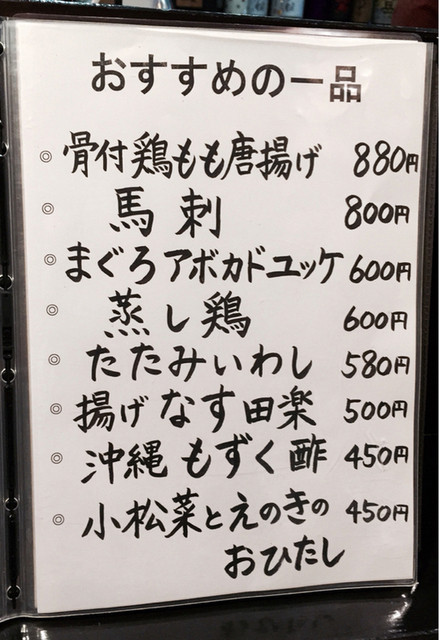 おすすめの一品
◎ 骨付鶏もも唐揚げ 880円
◎ 馬刺 800円
◎ まぐろアボカドユッケ 600円
◎ 蒸し鶏 600円
◎ たたみいわし 580円
◎ 揚げなす田楽 500円
◎ 沖縄もずく酢 450円
◎ 小松菜とえのきの 450円
おひたし